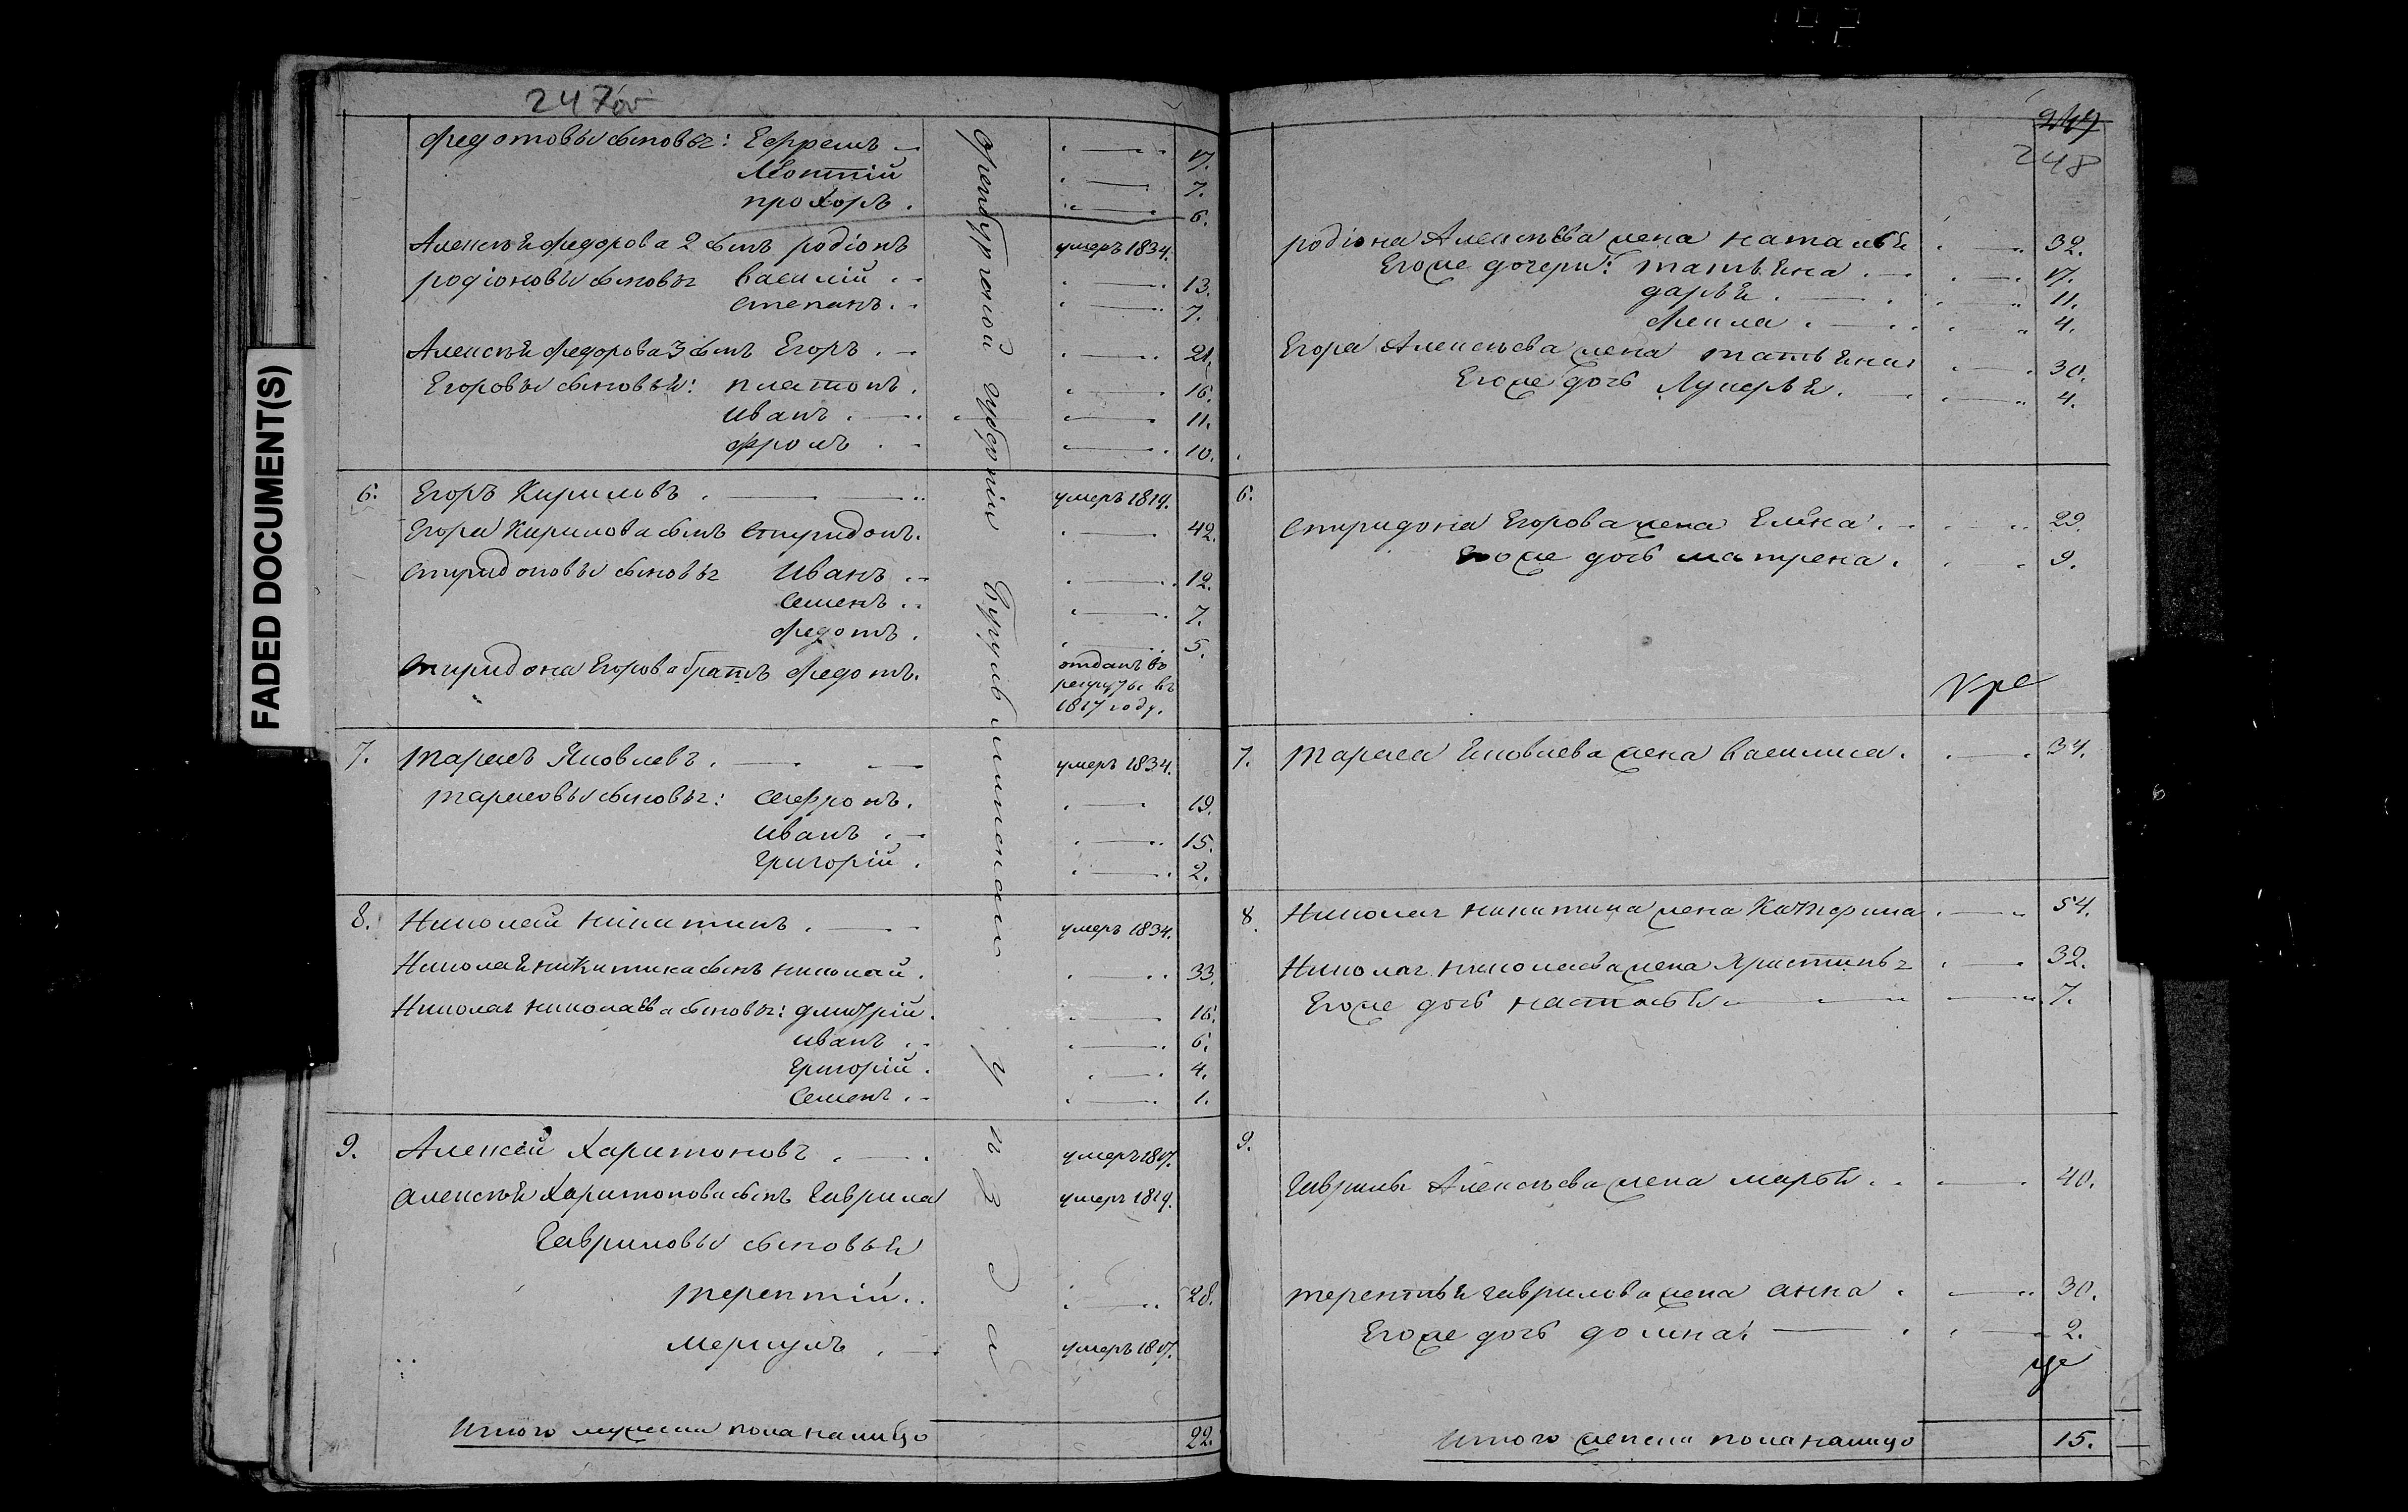 247 об
федотовы сыновьѣ: Ефремъ
Леонтій
прохоръ.
17.
7.
6.
Алексѣя федорова 2 сынъ родіонъ
умеръ 1834.
родіоновы сыновьѣ василій
13.
степанъ.
7.
Алексѣя федорова 3 сынъ Егоръ.
Егоровы сыновья: платонъ.
16.
иванъ.
11.
фролъ
10.
6. Егоръ Кириловъ.
умеръ 1819.
Егора Кирилова сынъ спиридонъ.
42.
спиридоновы сыновьѣ Иванъ
12.
семенъ
7.
федотъ.
5.
спиридона Егорова братъ федотъ.
отданъ во
рекруты въ
1817 году.
7. тарасъ Яковлевъ.
умеръ 1834.
тарасовы сыновьѣ: сафронъ.
19.
иванъ
15.
григорій.
2.
8. Николай никитинъ.
умеръ 1834.
Николая никитина сынъ николай.
33.
Николаѣ николаева сыновьѣ: дмитрій.
16.
иванъ
6.
григорій.
4.
семенъ.
1.
9. Алексѣй Харитоновъ.
умеръ 1817.
алексѣя Харитонова сынъ гаврила
умеръ 1819.
гавриловы сыновья
терентій
28.
меркулъ.
умеръ 1817.
Итого мужеска пола налицо
22.
Оренбургской губерніи Бугульминскаго уѣзда
FADED DOCUMENT(S)
248
родіона Алексѣева жена наталья
32.
Егоже дочери: татьяна
17.
дарья.
11.
фекла.
4.
Егора Алексѣева жена татьяна
30.
Егоже дочь Лукерья.
4.
6.
спиридона Егорова жена Елена.
29.
Егоже дочь матрена.
9.
7. тараса Яковлева жена василиса.
34.
8. Николаѣ никитина жена Катерина
54.
Николаѣ николаева жена Христинѣ
32.
Егоже дочь настасья
7.
9.
гаврилы Алексѣева жена марья
40.
терентья гаврилова жена анна
30.
Егоже дочь домна.
2.
Итого женска пола налицо
15.